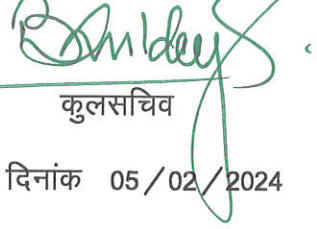 कुलसचिव
दिनांक 05/02/2024